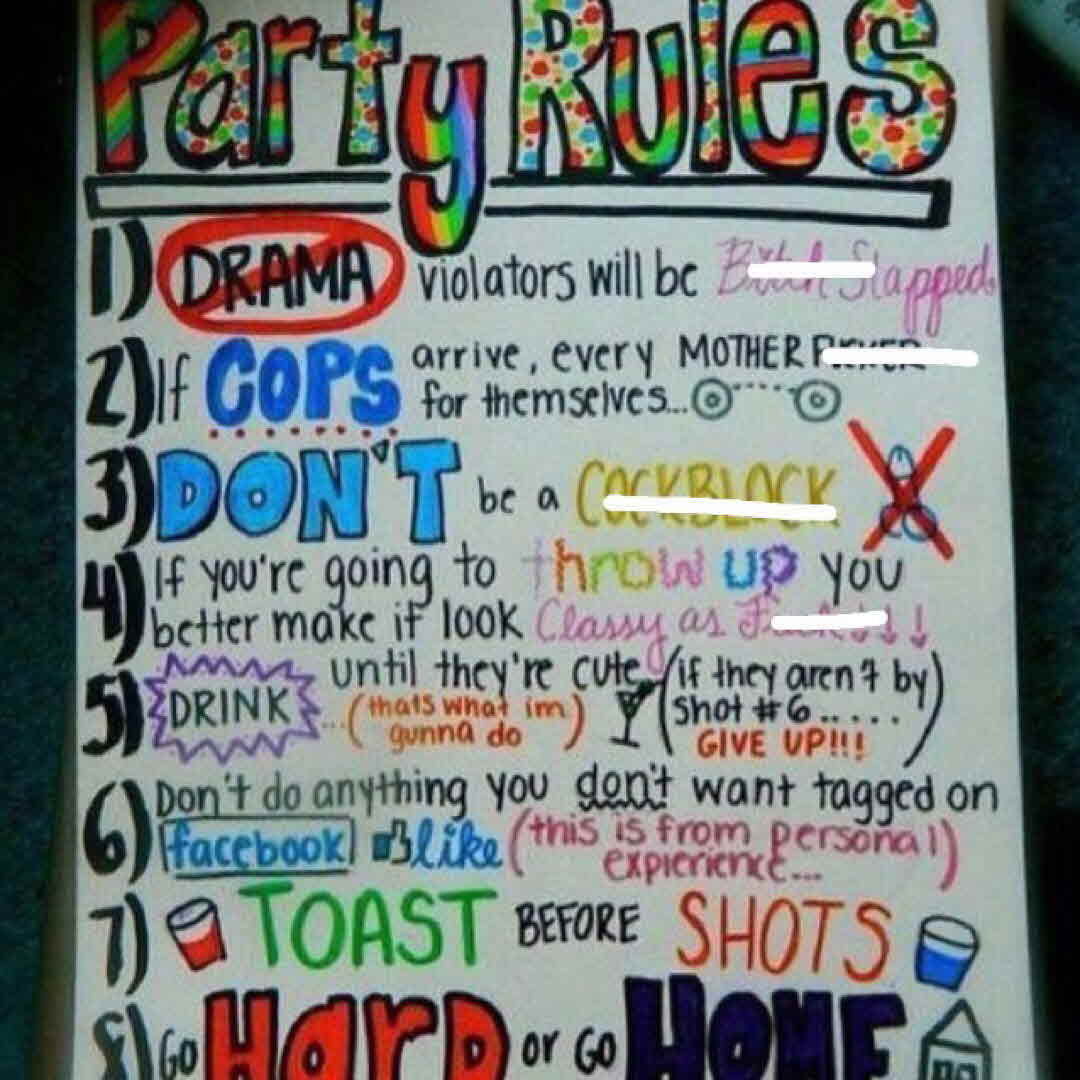 Party Rules
1) DRAMA violators will be Bitch Slapped
2) If COPS arrive, every MOTHER FUCKER
for themselves...
3) DON'T be a COCKBLOCK
4) If you're going to throw up you
better make if look Classy as Fuck
5) DRINK until they're cute (if they aren't by
...(thats what im shot #6.....
gunna do) GIVE UP!!!)
6) Don't do anything you don't want tagged on
facebook like (this is from personal
expierience...)
7) TOAST BEFORE SHOTS
8) GO HARD or GO HOME